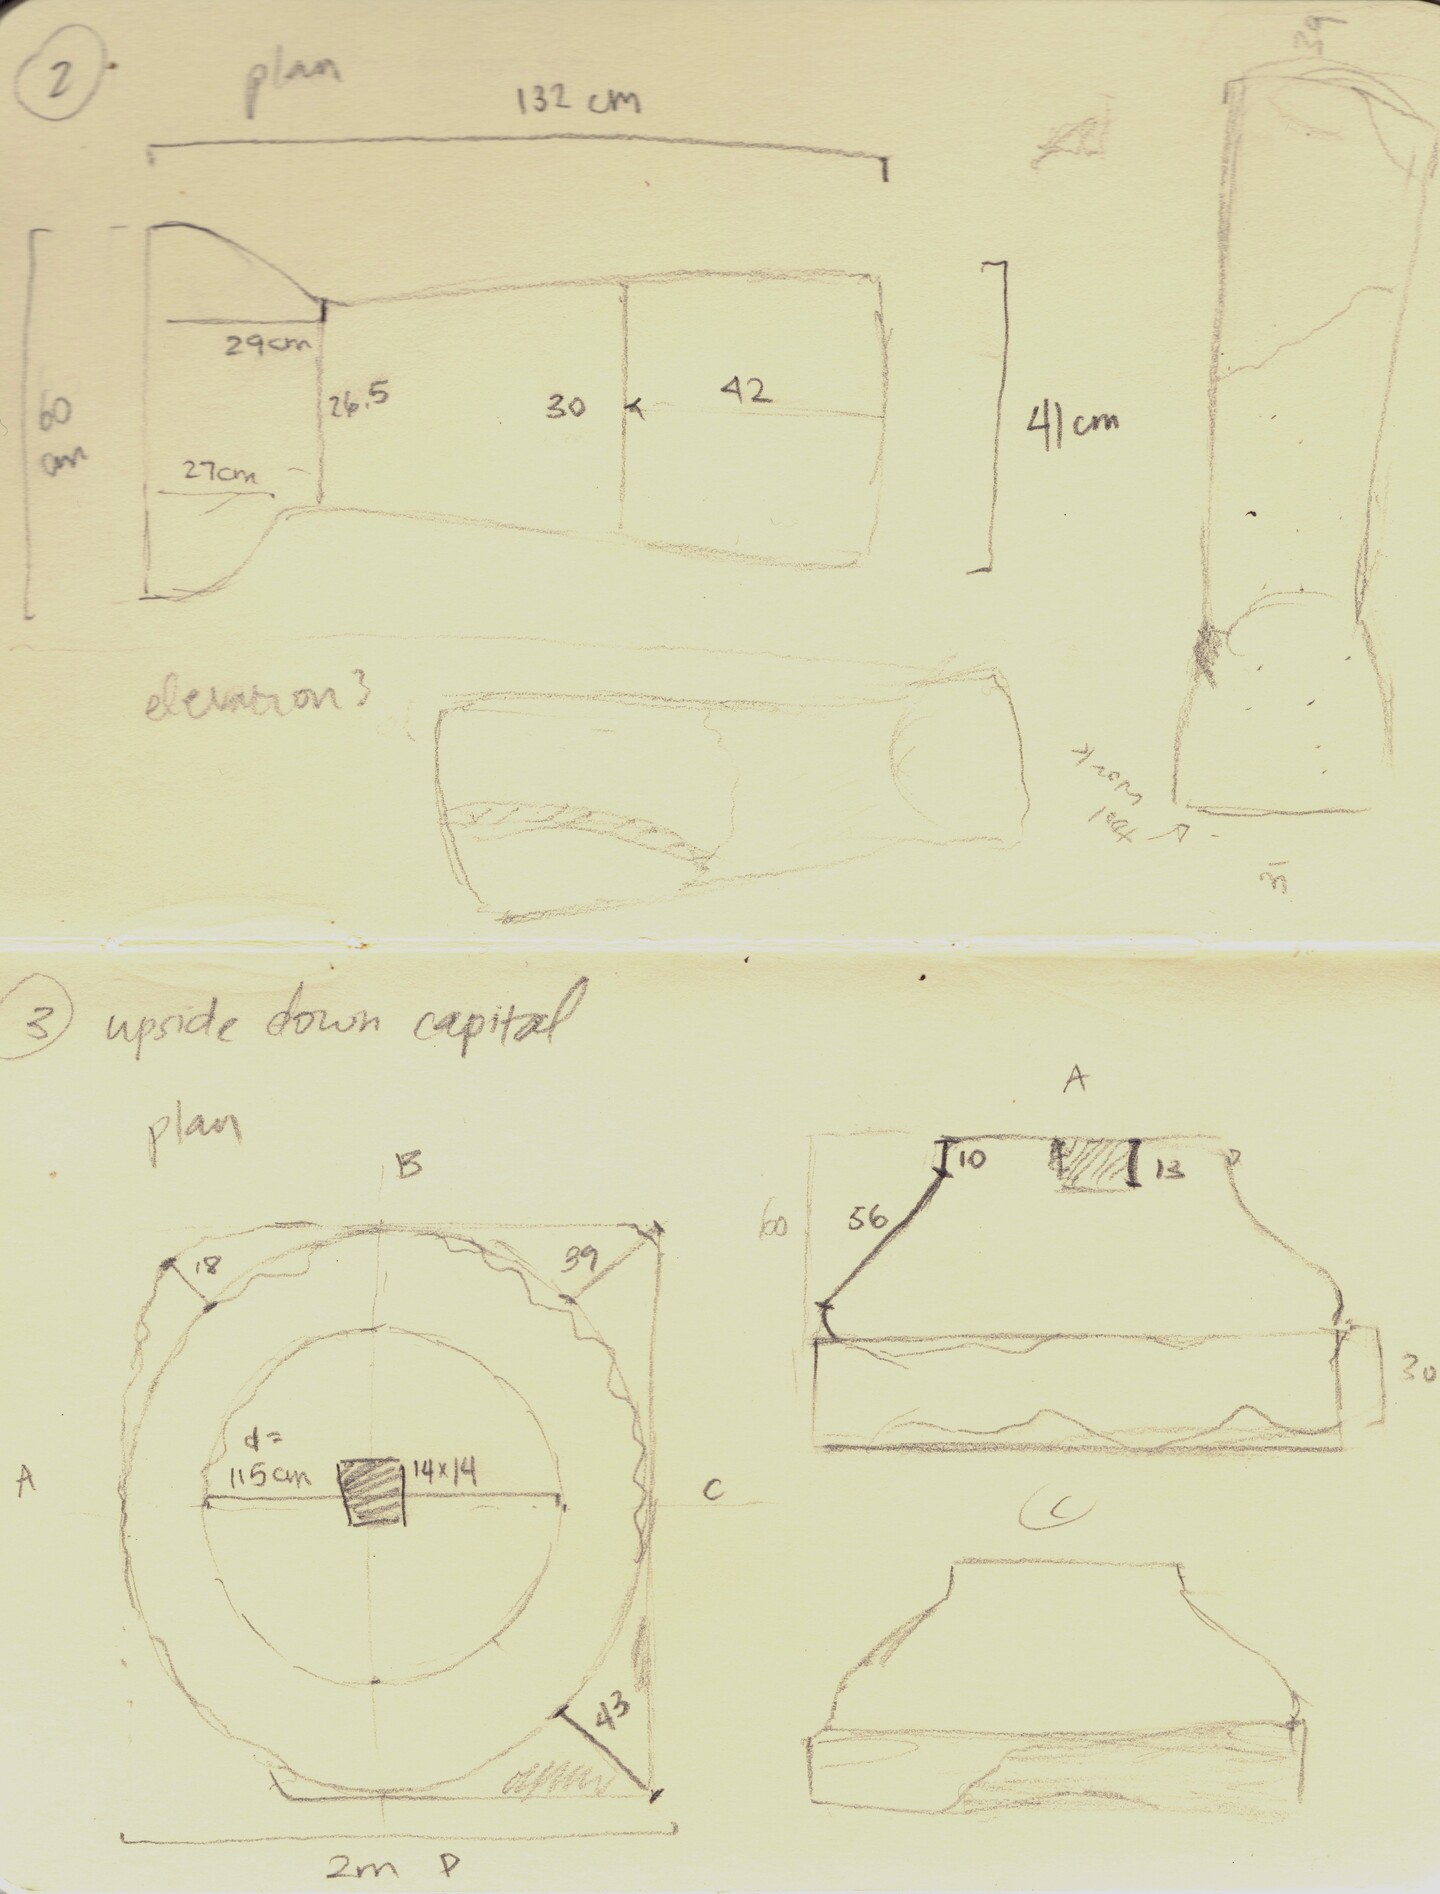 2
plan
132 cm
39
29cm
26.5
30
42
60
cm
27cm
41cm
elevation 3
3
upside down capital
plan
A
B
10
13
60
56
18
39
30
d=
115cm
14x14
A
C
C
43
2m D